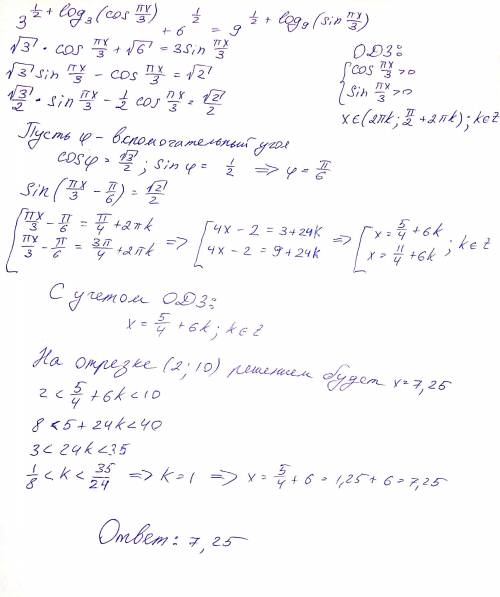 3^{1/2 + log₃(cos πx/3)} + 6^{1/2} = 9^{1/2 + log₉(sin πx/3)}
√3 · cos πx/3 + √6 = 3 sin πx/3
ОДЗ:
√3 sin πx/3 − cos πx/3 = √2
{ cos πx/3 >0
sin πx/3 >0
√3/2 · sin πx/3 − 1/2 cos πx/3 = √2/2
x∈(2πk; π/2 + 2πk); k∈Z
Пусть φ - вспомогательный угол
cosφ = √3/2; sinφ = 1/2 ⇒ φ = π/6
sin(πx/3 − π/6) = √2/2
[ πx/3 − π/6 = π/4 + 2πk
πx/3 − π/6 = 3π/4 + 2πk ⇒ [ 4x − 2 = 3 + 24k
4x − 2 = 9 + 24k ⇒ [ x = 5/4 + 6k
x = 11/4 + 6k ; k∈Z
С учетом ОДЗ:
x = 5/4 + 6k; k∈Z
На отрезке (2; 10) решением будет x = 7,25
2 < 5/4 + 6k < 10
8 < 5 + 24k < 40
3 < 24k < 35
1/8 < k < 35/24 ⇒ k = 1 ⇒ x = 5/4 + 6 = 1,25 + 6 = 7,25
Ответ: 7,25